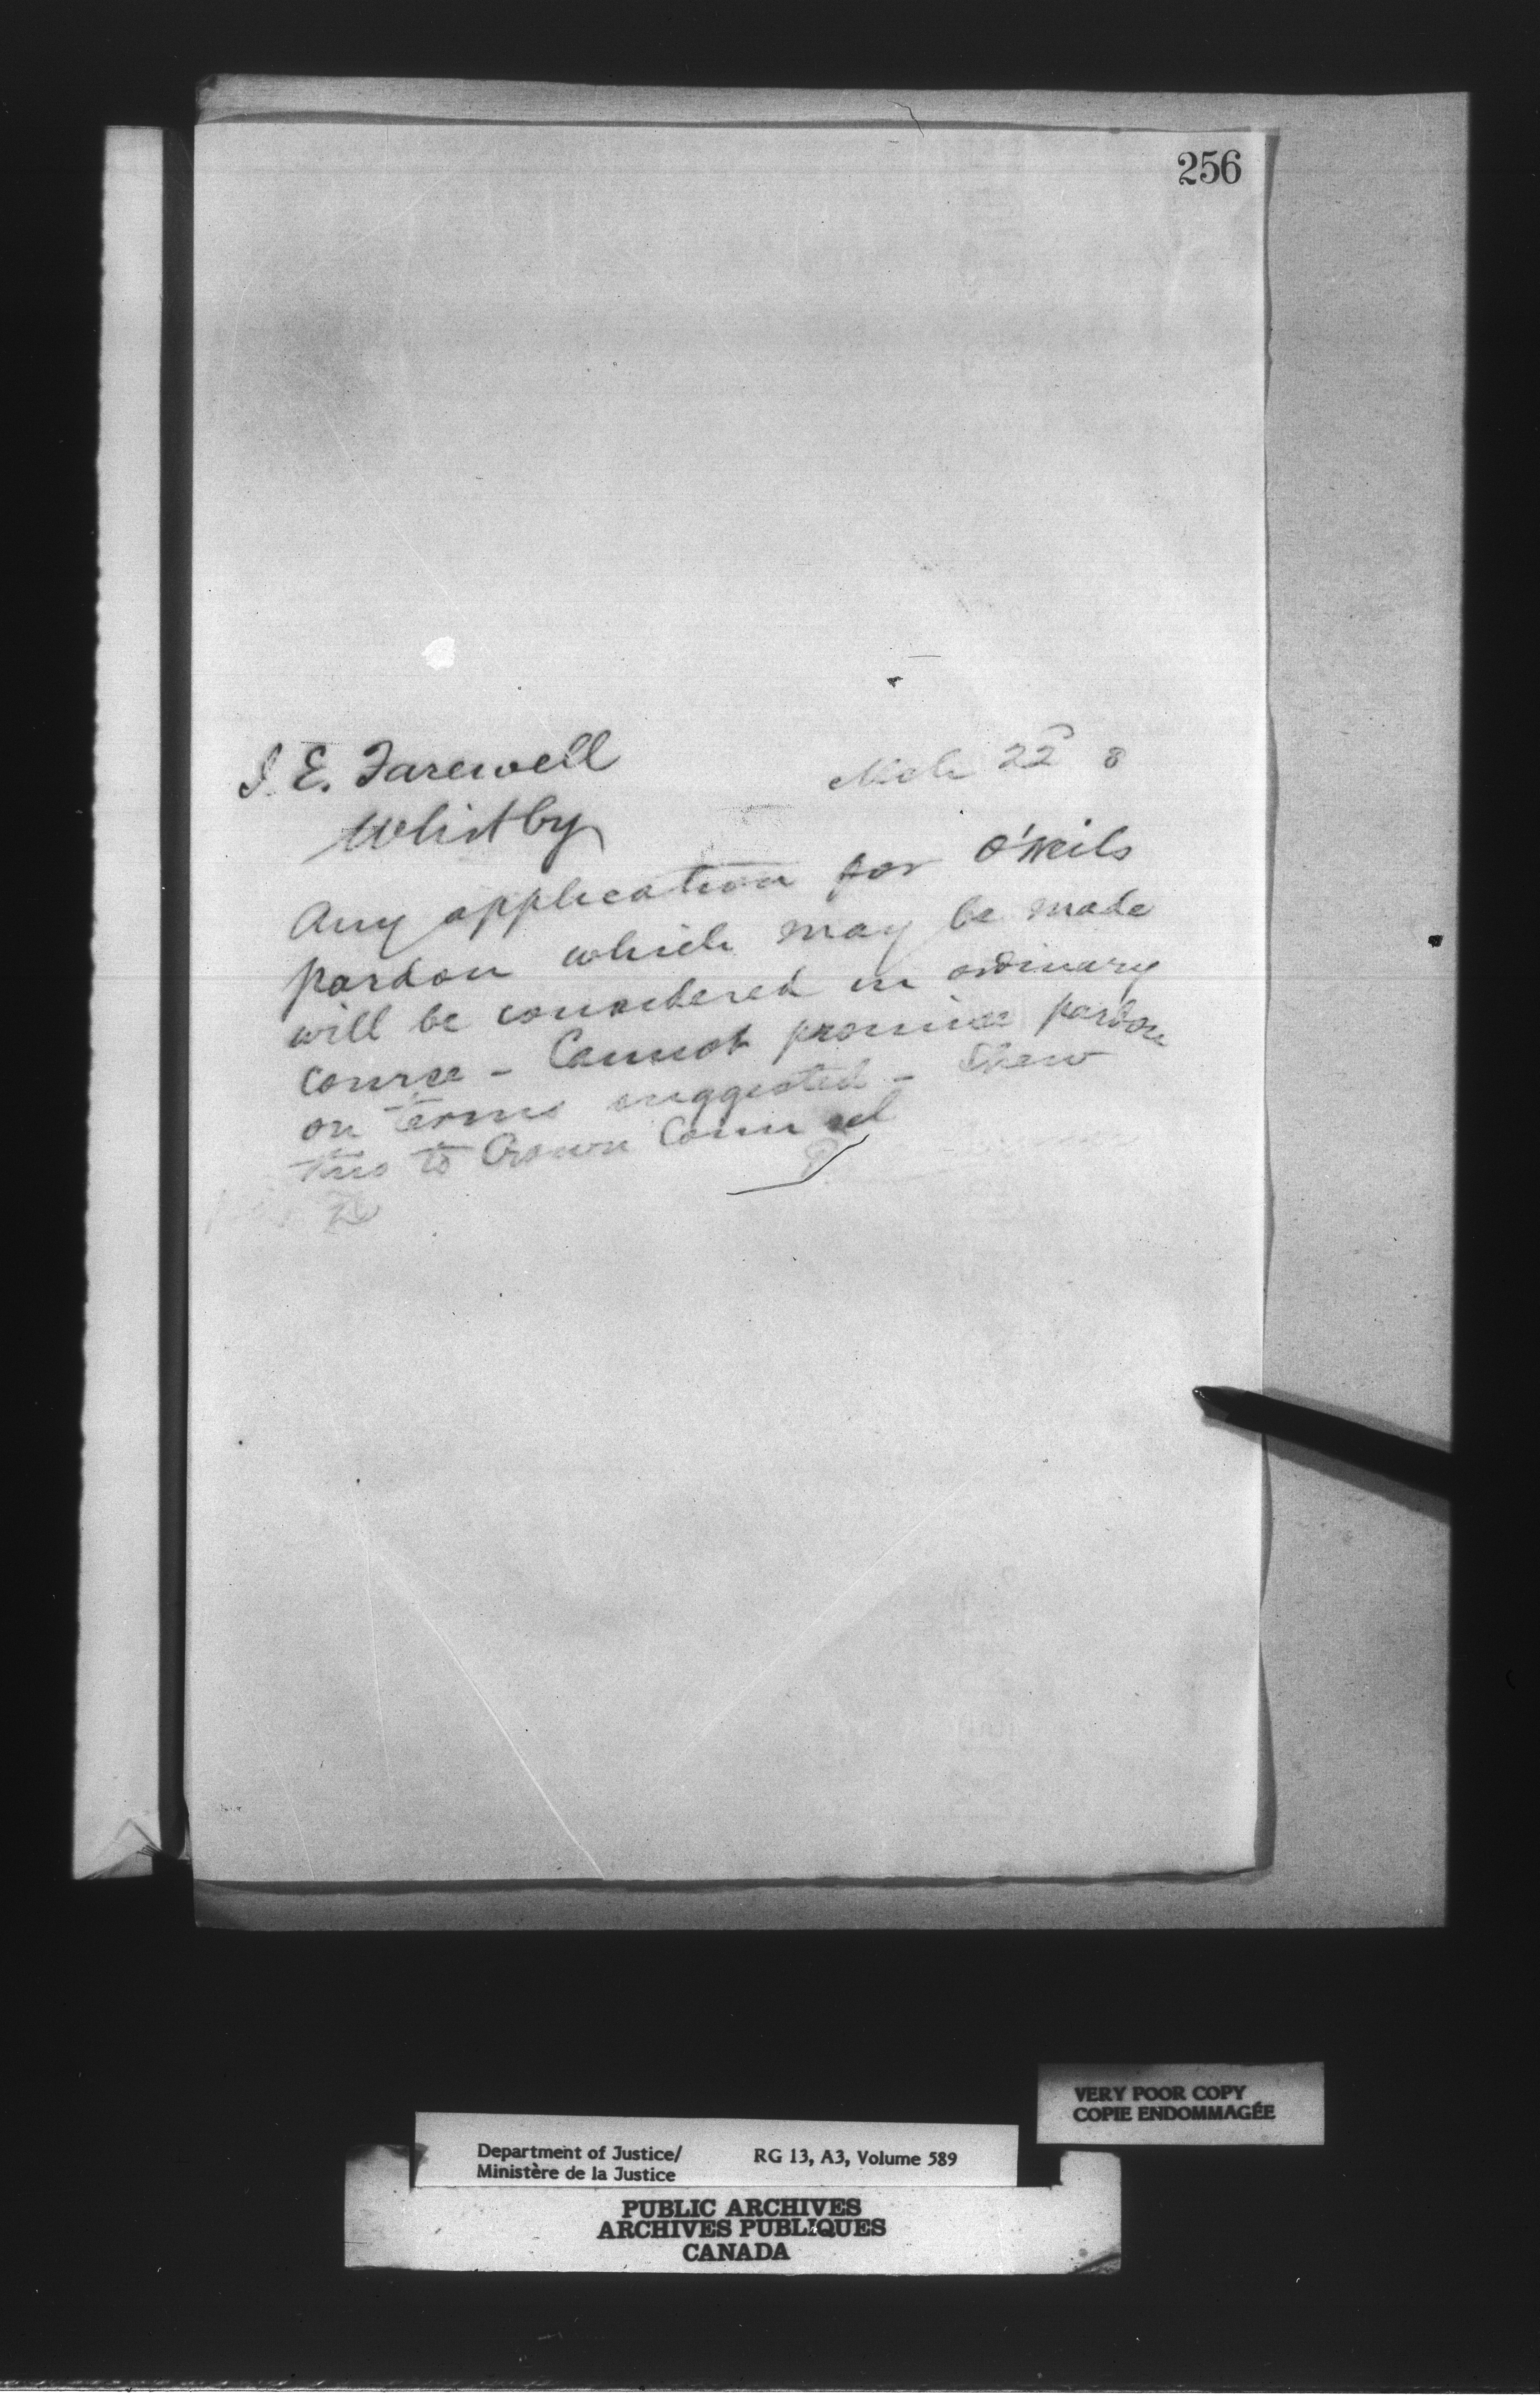 256
J. E. Farewell
Mch 22 8
Whitby
Any application for O'Neils
pardon which may be made
will be considered in ordinary
course - Cannot promise pardon
on terms suggested - Shew
this to Crown Counsel
VERY POOR COPY
COPIE ENDOMMAGÉE
Department of Justice/
Ministère de la Justice
RG 13, A3, Volume 589
PUBLIC ARCHIVES
ARCHIVES PUBLIQUES
CANADA